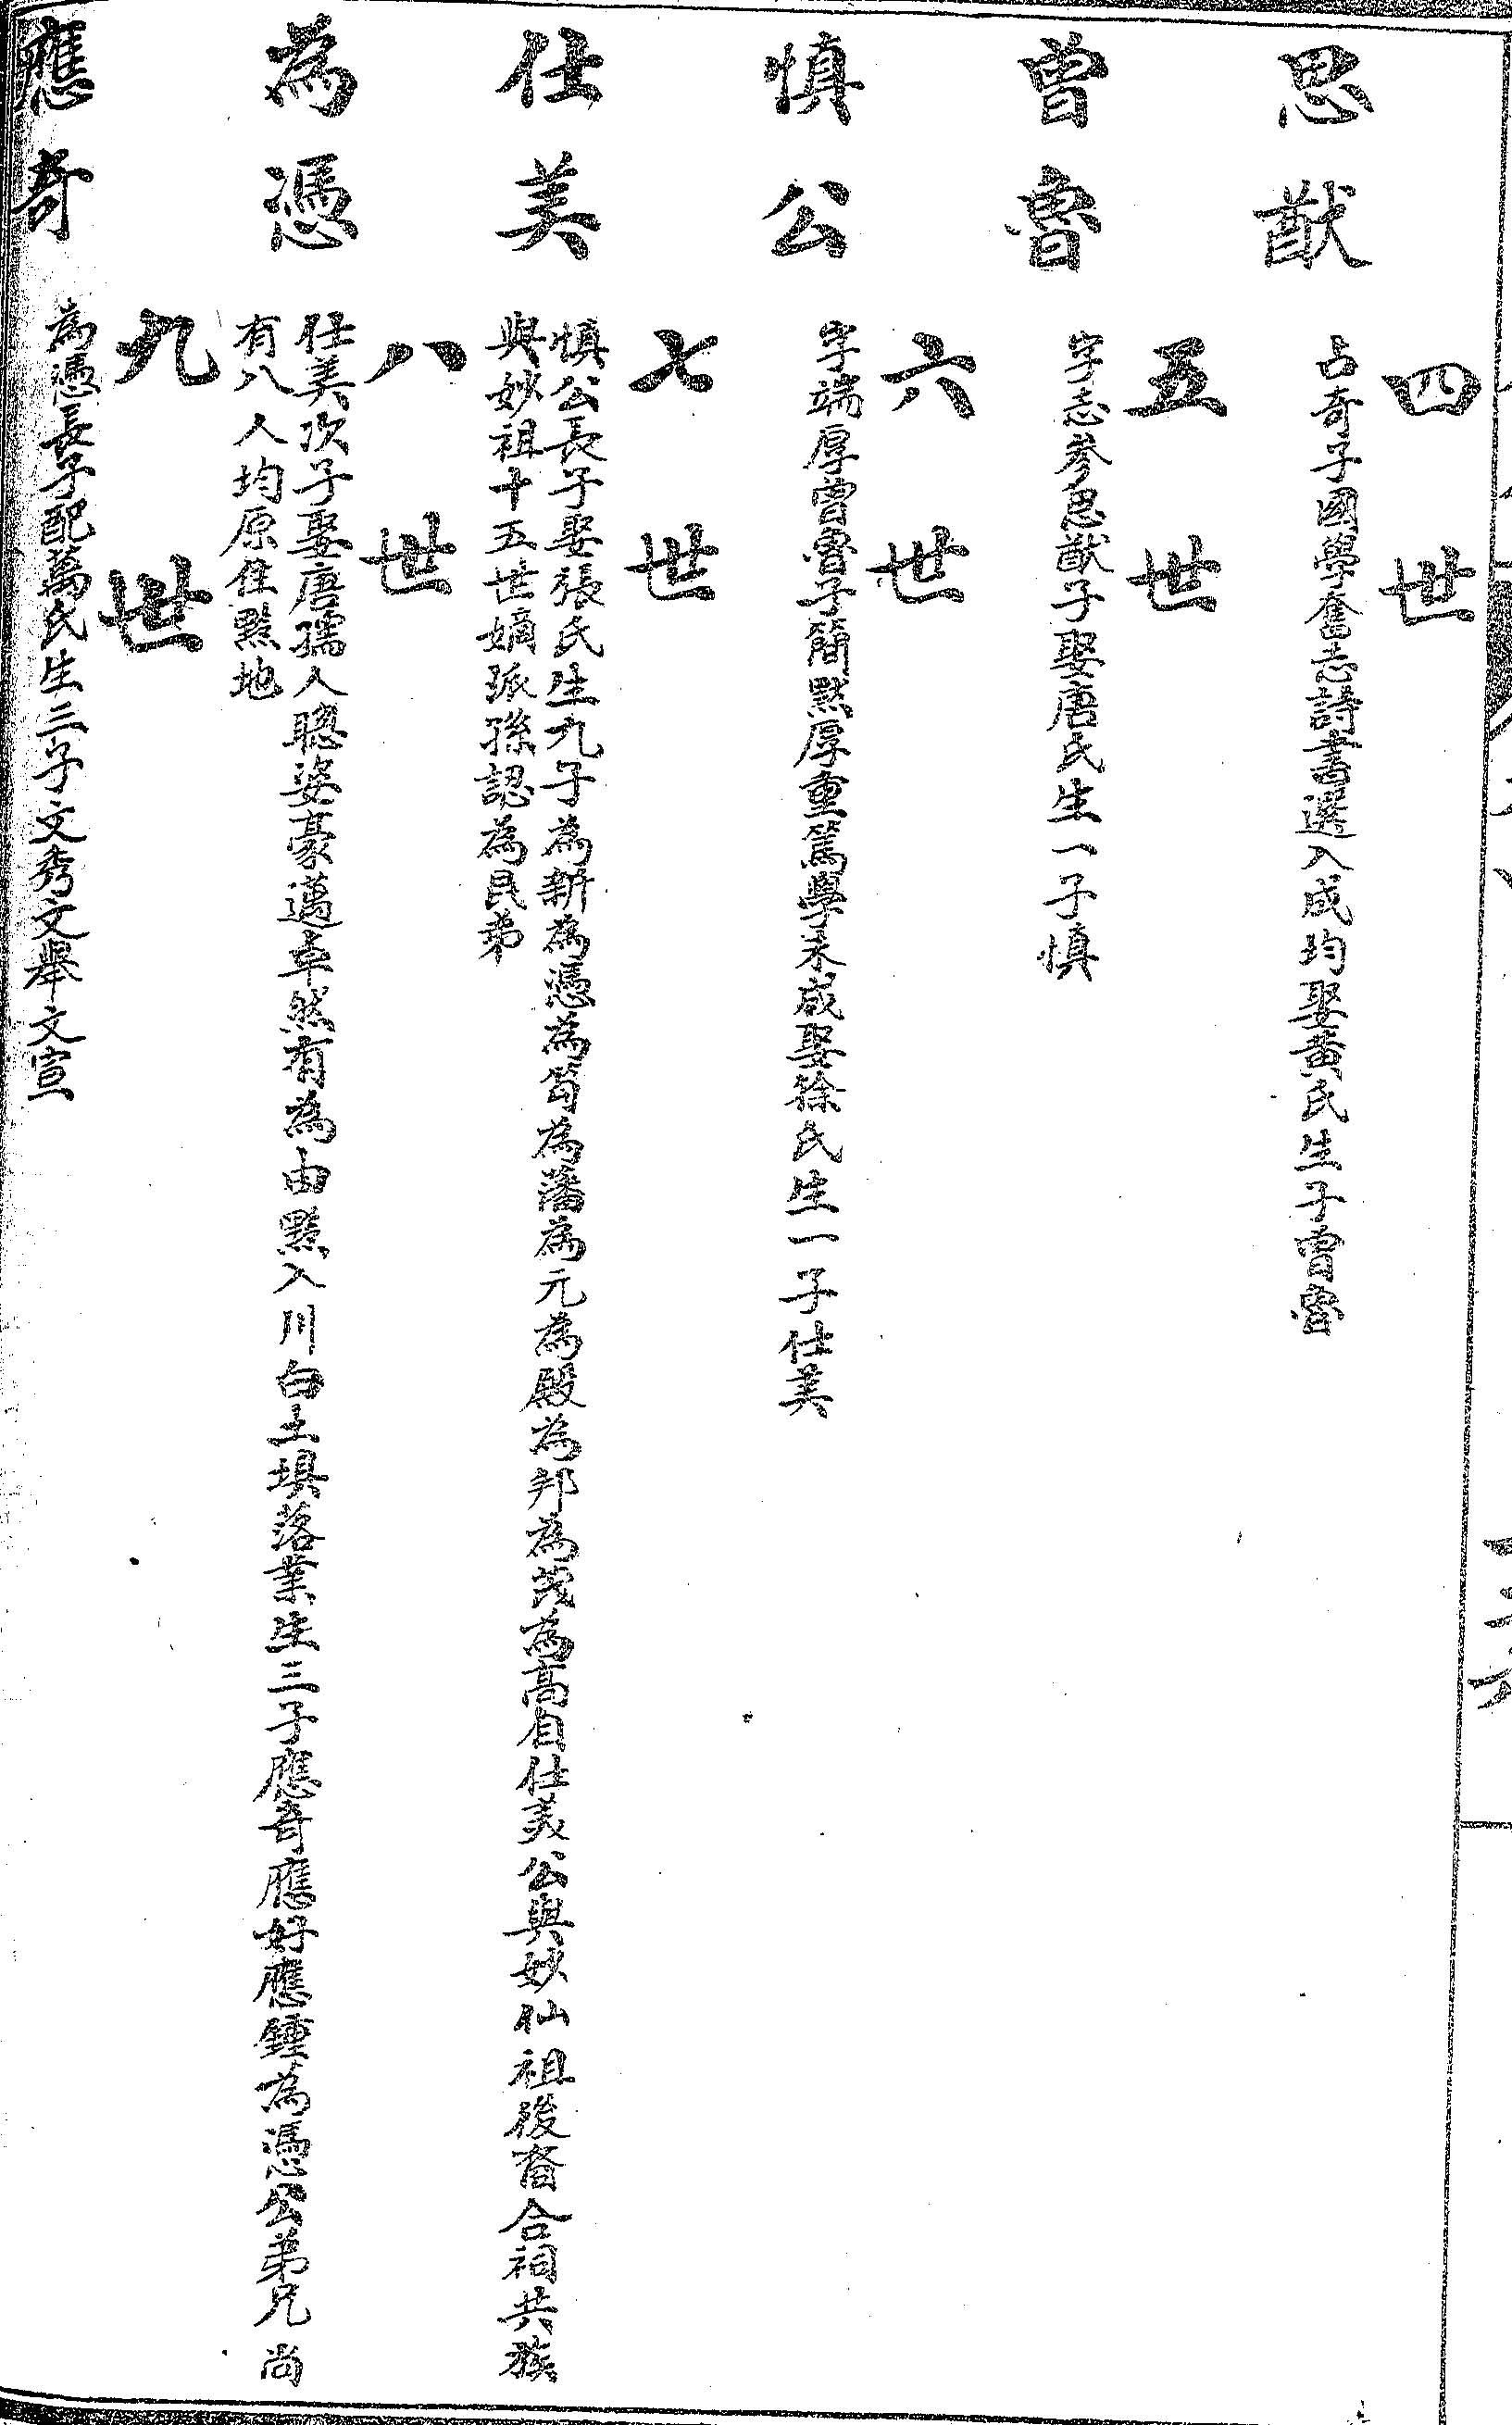 四世
思猷
占奇子國學奮志詩書選入成均娶黃氏生子曾魯
五世
曾魯
字志參思猷子娶唐氏生一子慎
六世
慎公
字端厚曾魯子簡默厚重篤學未成娶徐氏生一子仕美
七世
仕美
慎公長子娶張氏生九子為新為憑為筍為藩為元為殿為邦為茂為高自仕美公與妙仙祖後裔合祠共族
與妙祖十五世嫡派孫認為昆弟
八世
為憑
仕美次子娶唐孺人聰姿豪邁卓然有為由黔入川白土埧落業生三子應奇應好應鍾為憑公弟兄尚
有八人均原住黔地
九世
應奇
為憑長子配萬氏生三子文秀文舉文宣